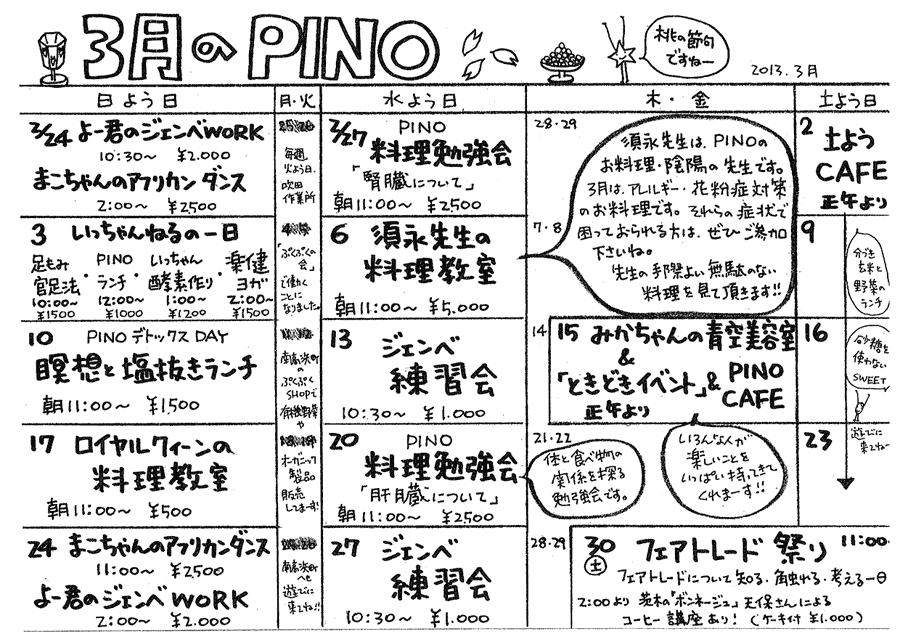 3月のPINO
桃の節句
ですねー
2013.3月
日よう日
月・火
水よう日
木・金
土よう日
2/24 よー君のジェンベWORK
10:30〜 ¥2.000
まこちゃんのアフリカンダンス
2:00〜 ¥2500
毎週
火よう日、
吹田
作業所
2/27 PINO
料理勉強会
「腎臓について」
朝11:00〜 ¥2500
28・29
須永先生は、PINOの
お料理・陰陽の先生です。
3月は、アレルギー・花粉症対策
のお料理です。それらの症状で
困っておられる方は、ぜひご参加
下さいね。
先生の手際よい無駄のない
料理を見て頂きます!!
2
土よう
CAFE
正午より
3 いっちゃんねるの一日
足もみ
官足法
10:00〜
¥1500
PINO
ランチ
12:00〜
¥1000
いっちゃん
酵素作り
1:00〜
¥1200
楽健
ヨガ
2:00〜
¥1500
「ぷくぷくの
会」
で働く
ことに
なりました。
6 須永先生の
料理教室
朝11:00〜 ¥5.000
7・8
9
分づき
玄米と
野菜の
ランチ
10 PINOデトックスDAY
瞑想と塩抜きランチ
朝11:00〜 ¥1500
南森町
の
ぷくぷく
SHOPで
有機野菜
や
13 ジェンベ
練習会
10:30〜 ¥1.000
14
15 みかちゃんの青空美容室
&
「ときどきイベント」& PINO
CAFE
正午より
16
砂糖を
使わない
SWEET
17 ロイヤルクィーンの
料理教室
朝11:00〜 ¥500
オーガニック
製品
販売
してまーす!
20 PINO
料理勉強会
「肝臓について」
朝11:00〜 ¥2500
21・22
体と食べ物の
関係を探る
勉強会です。
いろんな人が
楽しいことを
いっぱい持ってきて
くれまーす!!
23
遊びに
来てねー
24 まこちゃんのアフリカンダンス
11:00〜 ¥2500
よー君のジェンベWORK
2:00〜 ¥2.000
南森町
へも
遊びに
来てね!!
27 ジェンベ
練習会
10:30〜 ¥1.000
28・29
30 土 フェアトレード祭り 11:00
フェアトレードについて知る、触れる、考える一日
2:00より 茨木の「ボンネージュ」天保さんによる
コーヒー講座あり!(ケーキ付 ¥1.000)